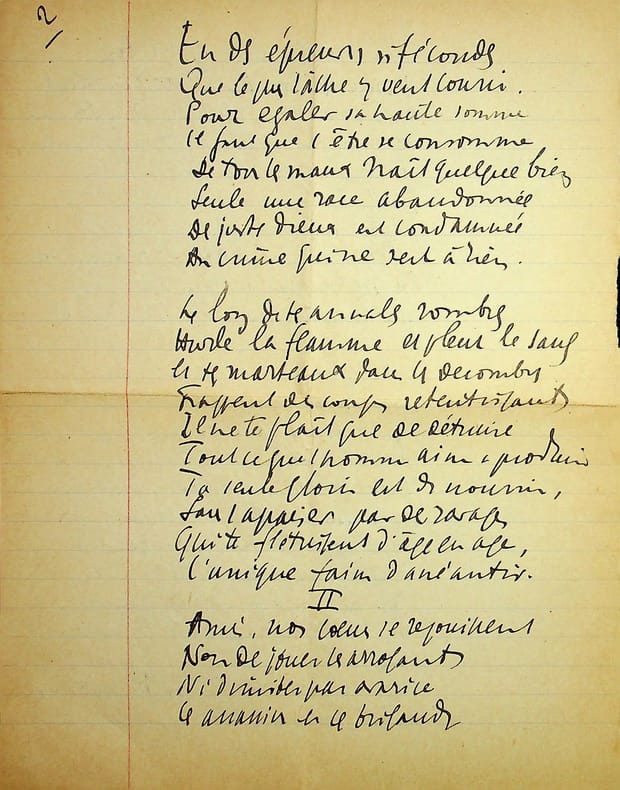 2
En des épreuves si fécondes
Que le plus lâche y veut courir.
Pour égaler sa haute somme
Il faut que l'être se consomme
De tous les maux naît quelque bien
Seule une race abandonnée
De justes dieux est condamnée
Au crime qui ne sert à rien.
Le long de tes annales sombres
Hurle la flamme et pleut le sang
Et tes marteaux dans les décombres
Frappent des coups retentissants
Il ne te plaît que de détruire
Tout ce que l'homme aime à produire
Ta seule gloire est de nourrir,
Sans l'apaiser par des ravages
Qui te flétrissent d'âge en age,
L'unique faim d'anéantir.
II
Amis, nos cœurs se rejouissent
Non de jouer les arrogants
Ni d'imiter par avarice
Les assassins et les brigands